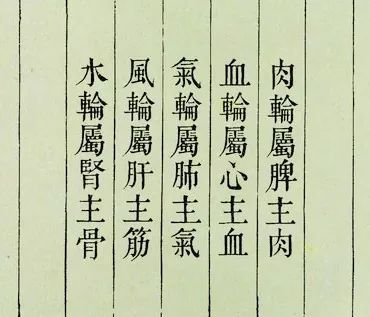 肉輪屬脾主肉
血輪屬心主血
氣輪屬肺主氣
風輪屬肝主筋
水輪屬腎主骨